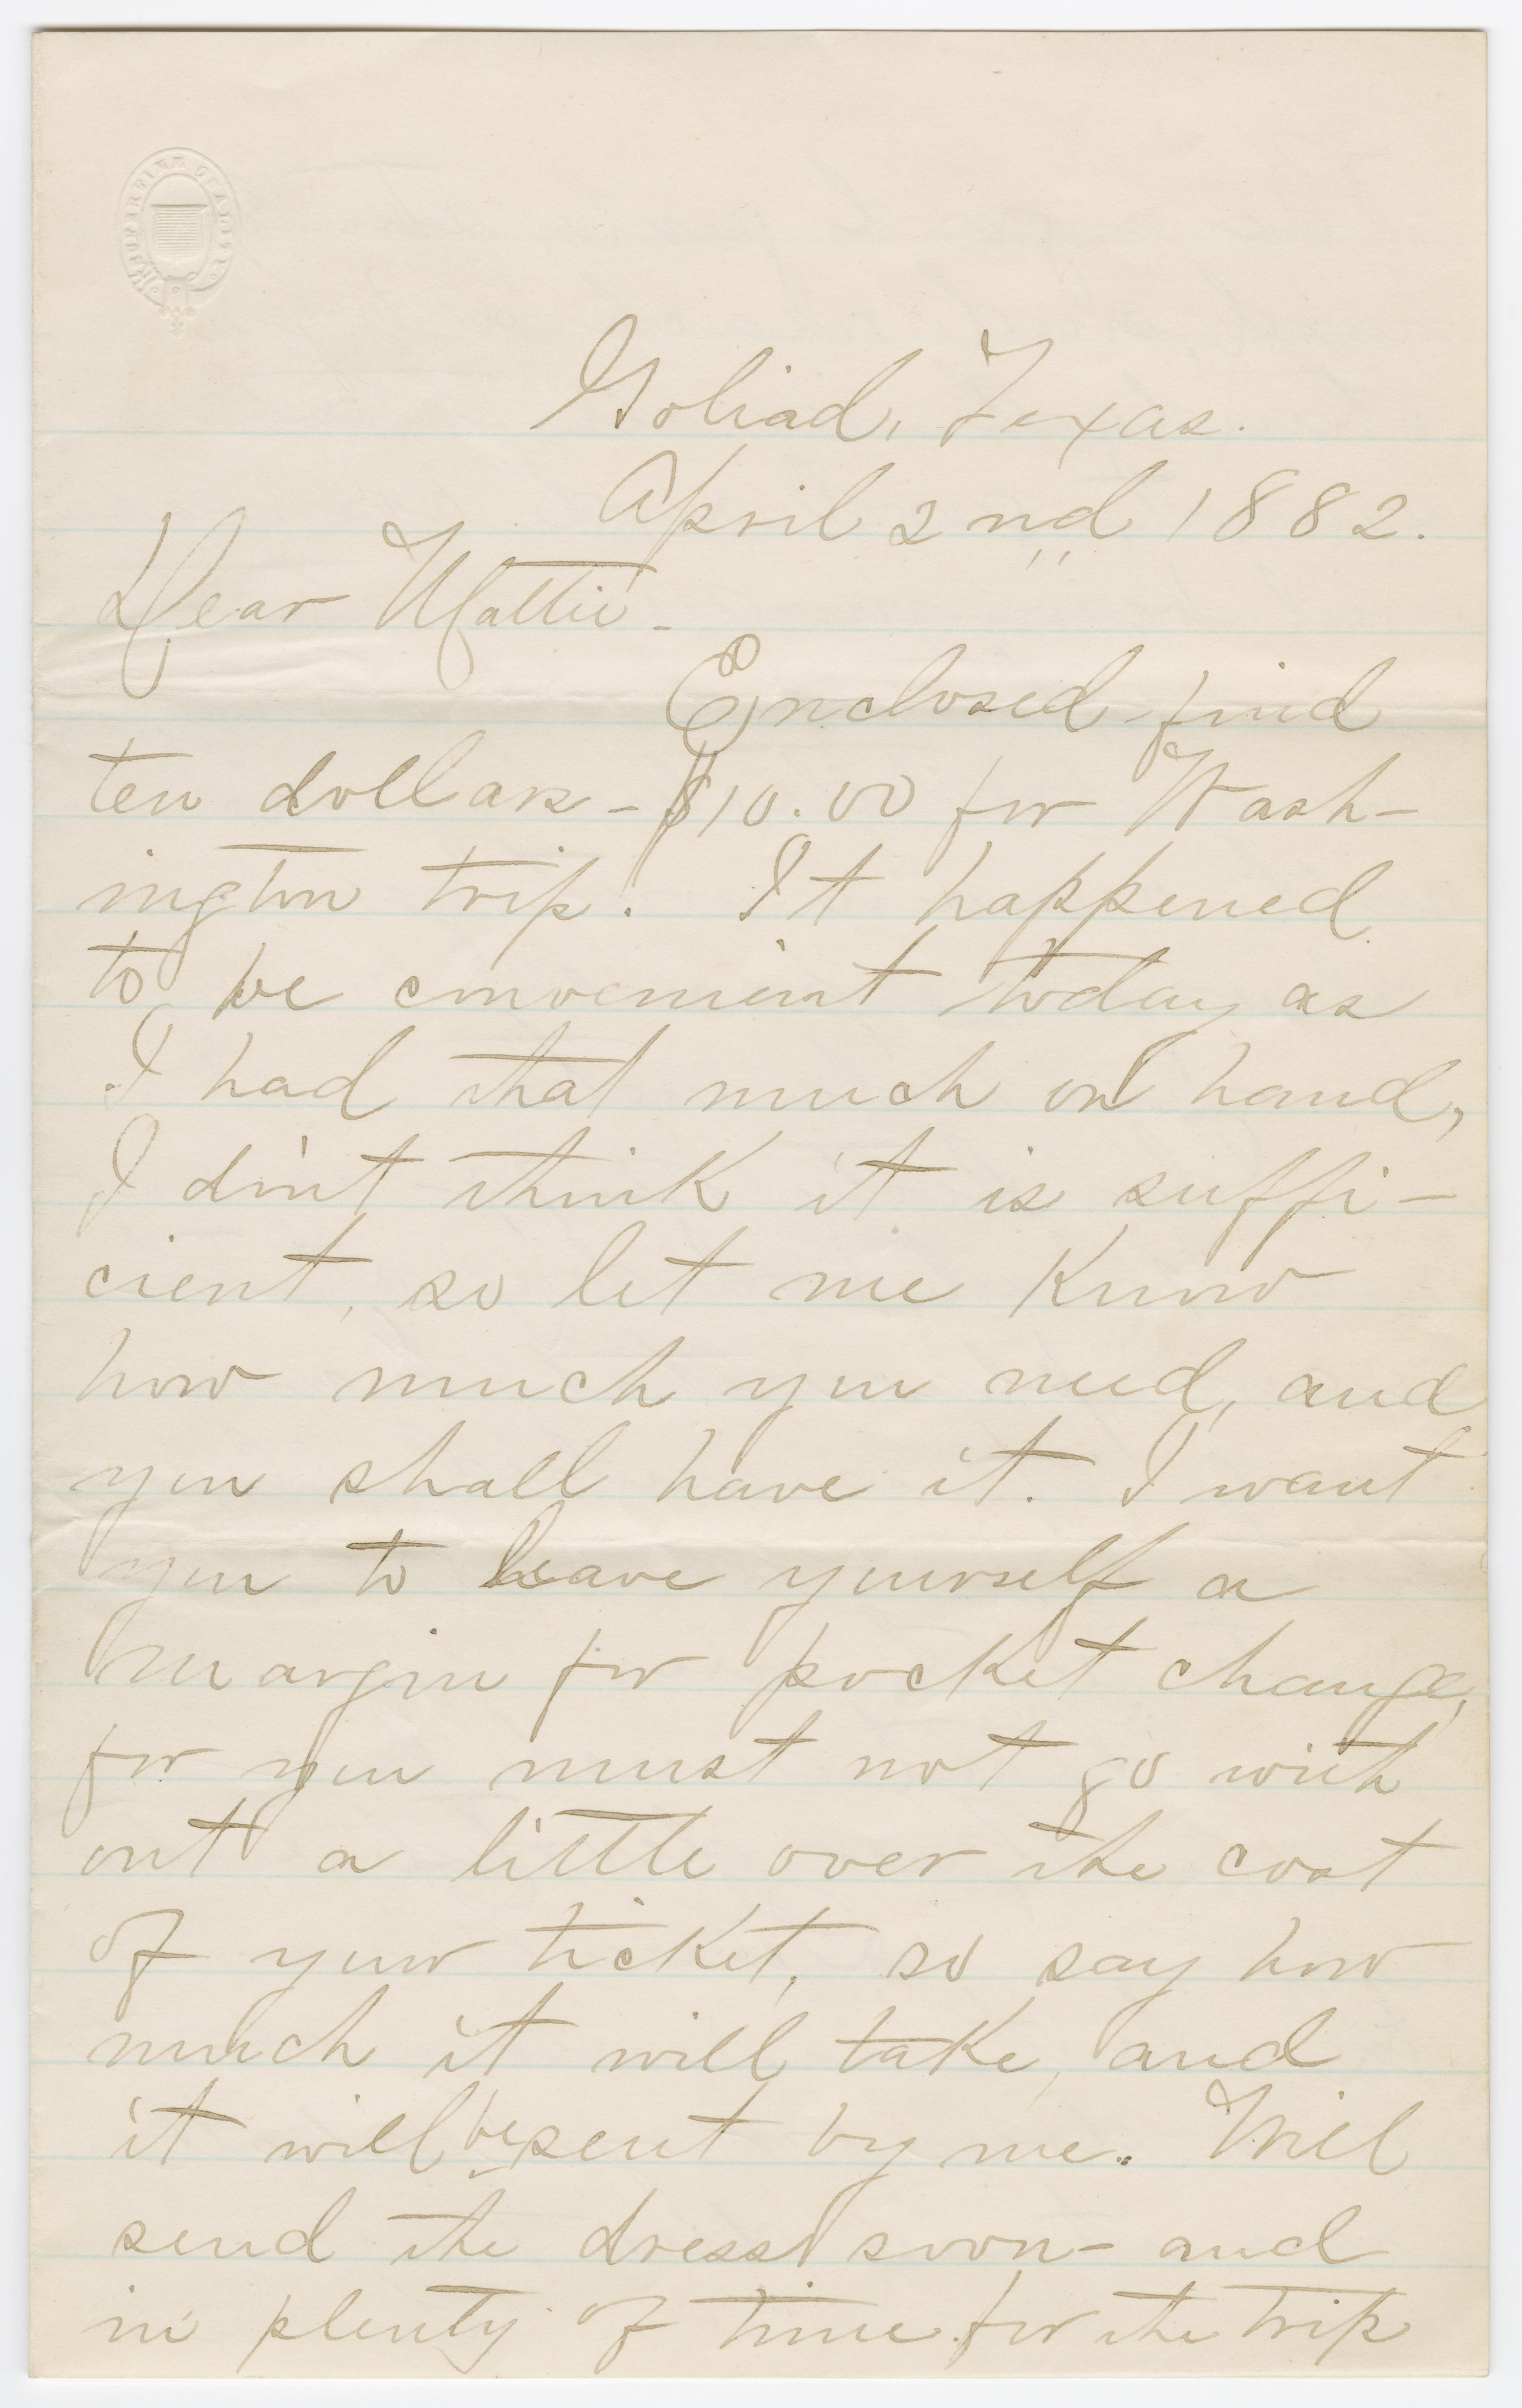 Goliad, Texas.
April 2nd 1882.
Dear Mattie -
Enclosed find
ten dollars - $10.00 for Wash-
ington trip. It happened
to be convenient today as
I had that much on hand,
I don't think it is suffi-
cient, so let me know
how much you need, and
you shall have it. I want
you to leave yourself a
margin for pocket change,
for you must not go with
out a little over the cost
of your ticket, so say how
much it will take, and
it will be sent by me. Will
send the dress soon - and
in plenty of time for the trip